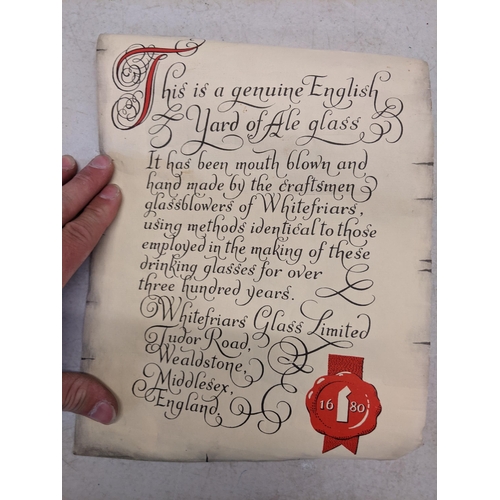 This is a genuine English
Yard of Ale glass,
It has been mouth blown and
hand made by the craftsmen
glassblowers of Whitefriars,
using methods identical to those
employed in the making of these
drinking glasses for over
three hundred years.
Whitefriars Glass Limited
Tudor Road,
Wealdstone,
Middlesex,
England,
16 80